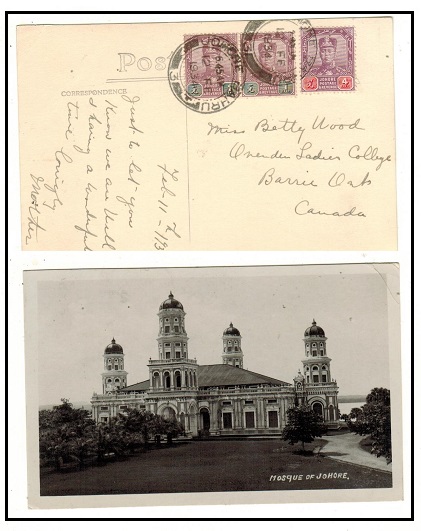 Post
CORRESPONDENCE
Feb. 11th/13
Just to let you
know we are well
& having a wonderful
time. Lovingly
Mother
JOHORE
JOHORE
Miss Betty Wood
Ovenden Ladies College
Barrie Ont
Canada
MOSQUE OF JOHORE.